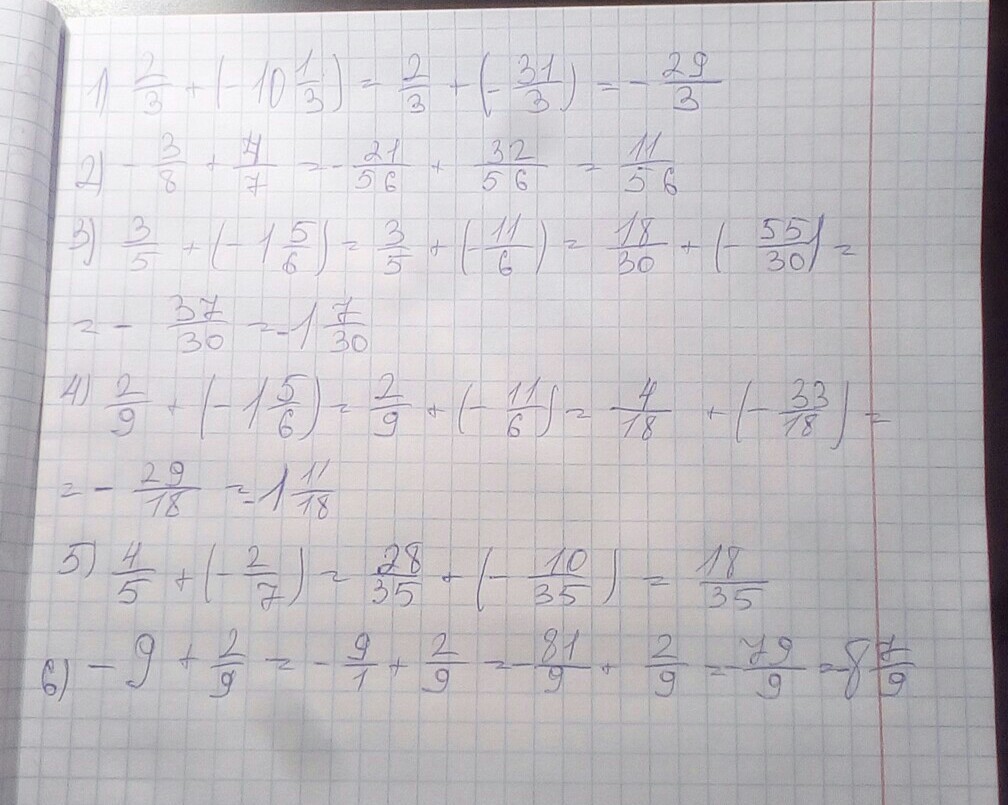 1) 2/3 + (-10 1/3) = 2/3 + (-31/3) = -29/3
2) -3/8 + 4/7 = -21/56 + 32/56 = 11/56
3) 3/5 + (-1 5/6) = 3/5 + (-11/6) = 18/30 + (-55/30) =
= -37/30 = -1 7/30
4) 2/9 + (-1 5/6) = 2/9 + (-11/6) = 4/18 + (-33/18) =
= -29/18 = -1 11/18
5) 4/5 + (-2/7) = 28/35 + (-10/35) = 18/35
6) -9 + 2/9 = -9/1 + 2/9 = -81/9 + 2/9 = -79/9 = -8 7/9